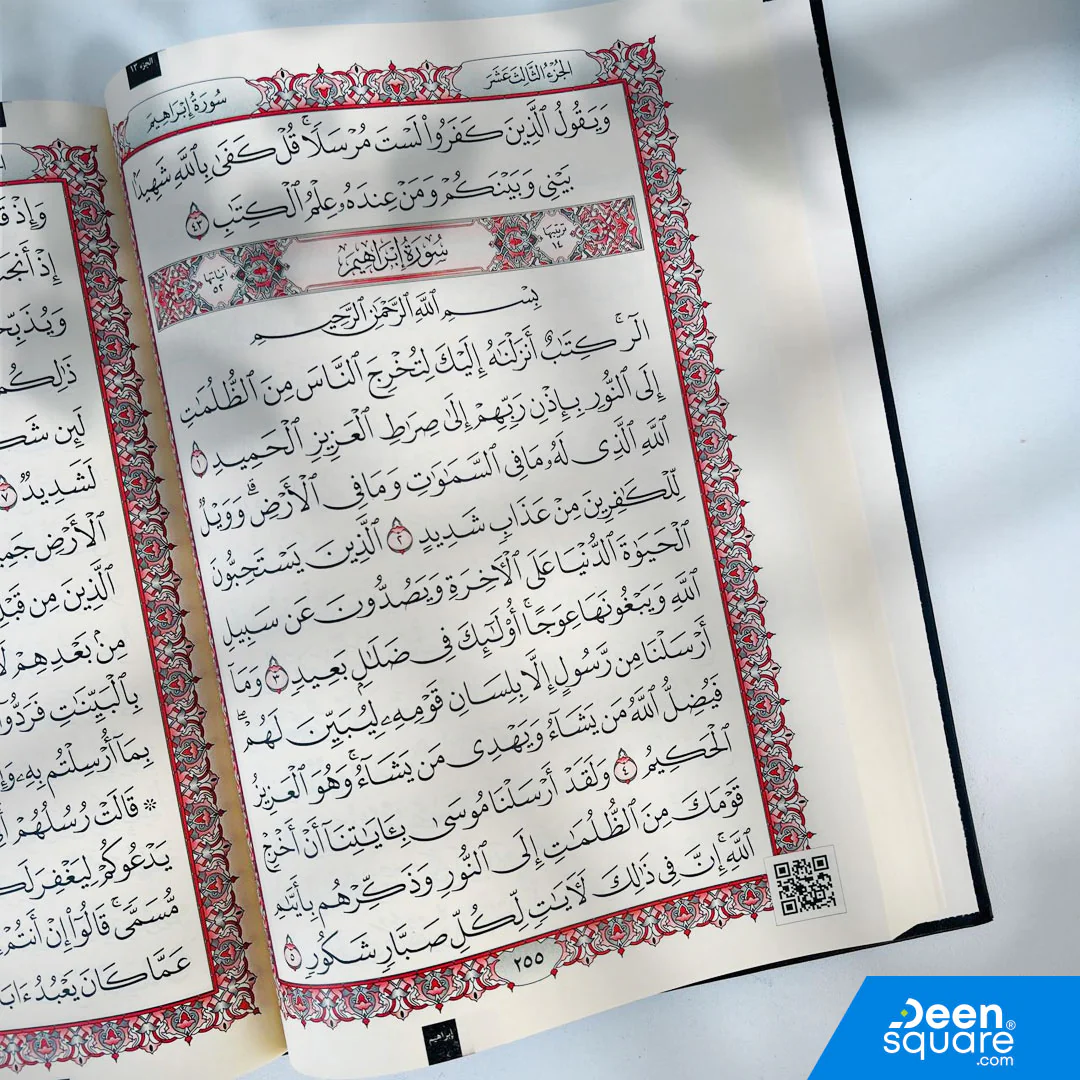 الجزء ١٣
سُورَةُ إِبْرَاهِيمَ
الجُزْءُ الثَّالِثَ عَشَرَ
وَيَقُولُ ٱلَّذِينَ كَفَرُوا۟ لَسْتَ مُرْسَلًۭا ۚ قُلْ كَفَىٰ بِٱللَّهِ شَهِيدًۢا
بَيْنِى وَبَيْنَكُمْ وَمَنْ عِندَهُۥ عِلْمُ ٱلْكِتَٰبِ ٤٣
تَرْتِيبُهَا ١٤ سُورَةُ إِبْرَاهِيم آيَاتُهَا ٥٢
بِسْمِ ٱللَّهِ ٱلرَّحْمَٰنِ ٱلرَّحِيمِ
الٓر ۚ كِتَٰبٌ أَنزَلْنَٰهُ إِلَيْكَ لِتُخْرِجَ ٱلنَّاسَ مِنَ ٱلظُّلُمَٰتِ
إِلَى ٱلنُّورِ بِإِذْنِ رَبِّهِمْ إِلَىٰ صِرَٰطِ ٱلْعَزِيزِ ٱلْحَمِيدِ ١
ٱللَّهِ ٱلَّذِى لَهُۥ مَا فِى ٱلسَّمَٰوَٰتِ وَمَا فِى ٱلْأَرْضِ ۗ وَوَيْلٌۭ
لِّلْكَٰفِرِينَ مِنْ عَذَابٍۢ شَدِيدٍ ٢ ٱلَّذِينَ يَسْتَحِبُّونَ
ٱلْحَيَوٰةَ ٱلدُّنْيَا عَلَى ٱلْءَاخِرَةِ وَيَصُدُّونَ عَن سَبِيلِ
ٱللَّهِ وَيَبْغُونَهَا عِوَجًا ۚ أُو۟لَٰٓئِكَ فِى ضَلَٰلٍۭ بَعِيدٍۢ ٣ وَمَآ
أَرْسَلْنَا مِن رَّسُولٍ إِلَّا بِلِسَانِ قَوْمِهِۦ لِيُبَيِّنَ لَهُمْ ۖ
فَيُضِلُّ ٱللَّهُ مَن يَشَآءُ وَيَهْدِى مَن يَشَآءُ ۚ وَهُوَ ٱلْعَزِيزُ
ٱلْحَكِيمُ ٤ وَلَقَدْ أَرْسَلْنَا مُوسَىٰ بِـَٔايَٰتِنَآ أَنْ أَخْرِجْ
قَوْمَكَ مِنَ ٱلظُّلُمَٰتِ إِلَى ٱلنُّورِ وَذَكِّرْهُم بِأَيَّىٰمِ
ٱللَّهِ ۚ إِنَّ فِى ذَٰلِكَ لَءَايَٰتٍۢ لِّكُلِّ صَبَّارٍۢ شَكُورٍۢ ٥
٢٥٥
إبراهيم
وَإِذْ
إِذْ
ذَٰلِكُم
لَئِن
لَشَدِيدٌۭ ٧
ٱلْأَرْضِ
ٱلَّذِينَ مِن
مِنۢ بَعْدِهِمْ
بِٱلْبَيِّنَٰتِ
بِمَآ أُرْسِلْتُم بِهِۦ
* قَالَتْ رُسُلُهُمْ
يَدْعُوكُمْ لِيَغْفِرَ
مُّسَمًّۭى ۚ قَالُوٓا۟ إِنْ أَنتُمْ
عَمَّا كَانَ يَعْبُدُ
Deen®
square
.com